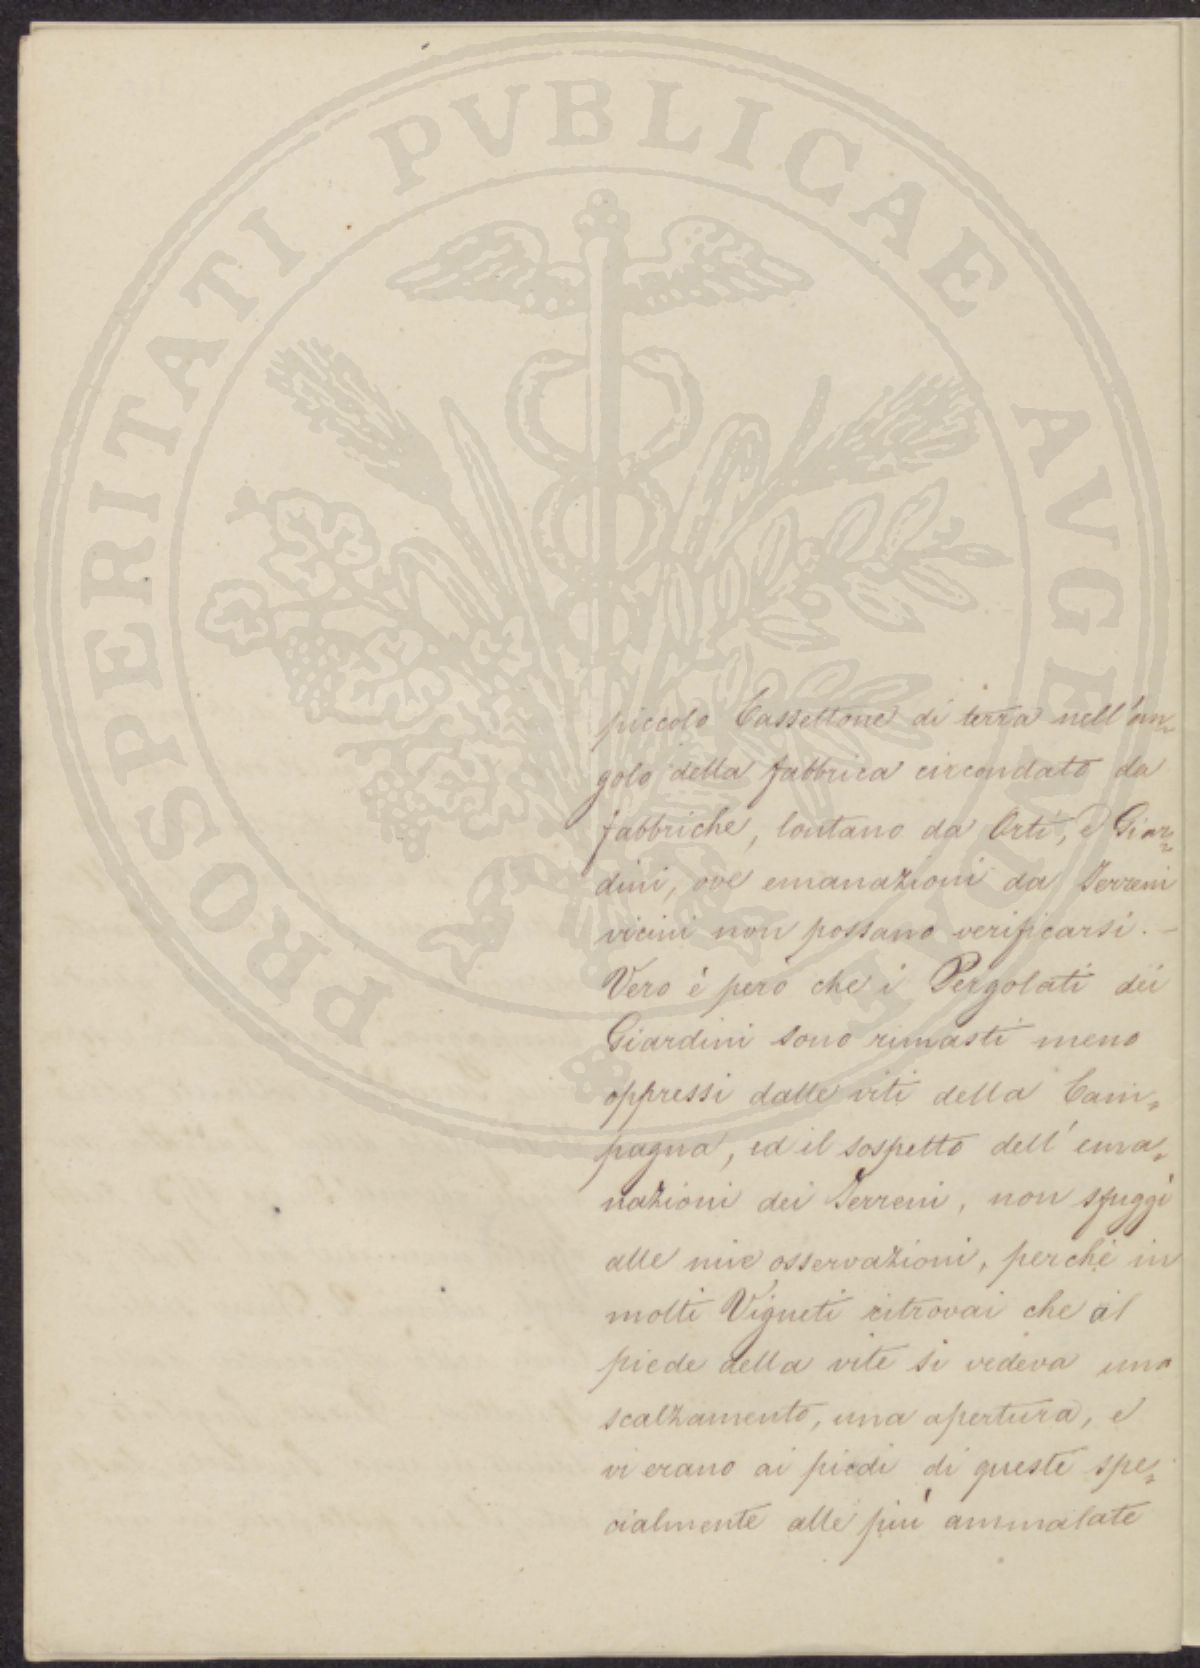 PROSPERITATI PVBLICAE AVGENDAE
piccolo Cassettone di terra nell'an=
golo della fabbrica circondato da
fabbriche, lontano da Orti, e Giar=
dini, ove emanazioni da Terreni
vicini non possano verificarsi. –
Vero è però che i Pergolati dei
Giardini sono rimasti meno
oppressi dalle viti della Cam=
pagna, ed il sospetto dell'ema=
nazioni dei Terreni, non sfuggì
alle mie osservazioni, perchè in
molti Vigneti ritrovai che al
piede della vite si vedeva uno
scalzamento, una apertura, e
vi erano ai piedi di queste spe=
cialmente alle più ammalate